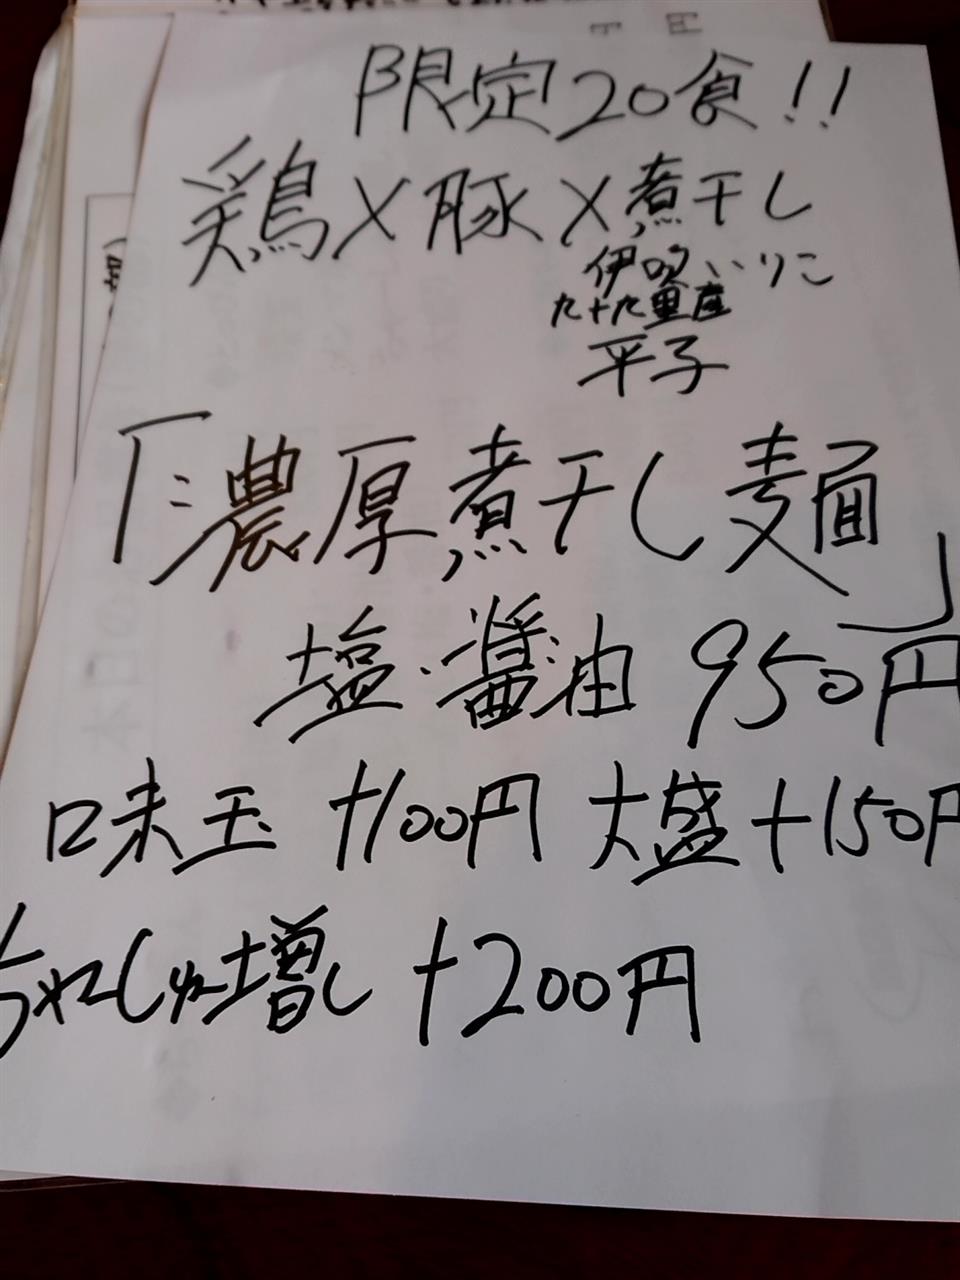 限定20食!!
鶏×豚×煮干し
伊吹いりこ
九十九里産
平子
「濃厚煮干し麺」
塩・醤油 950円
味玉 +100円 大盛 +150円
増し +200円